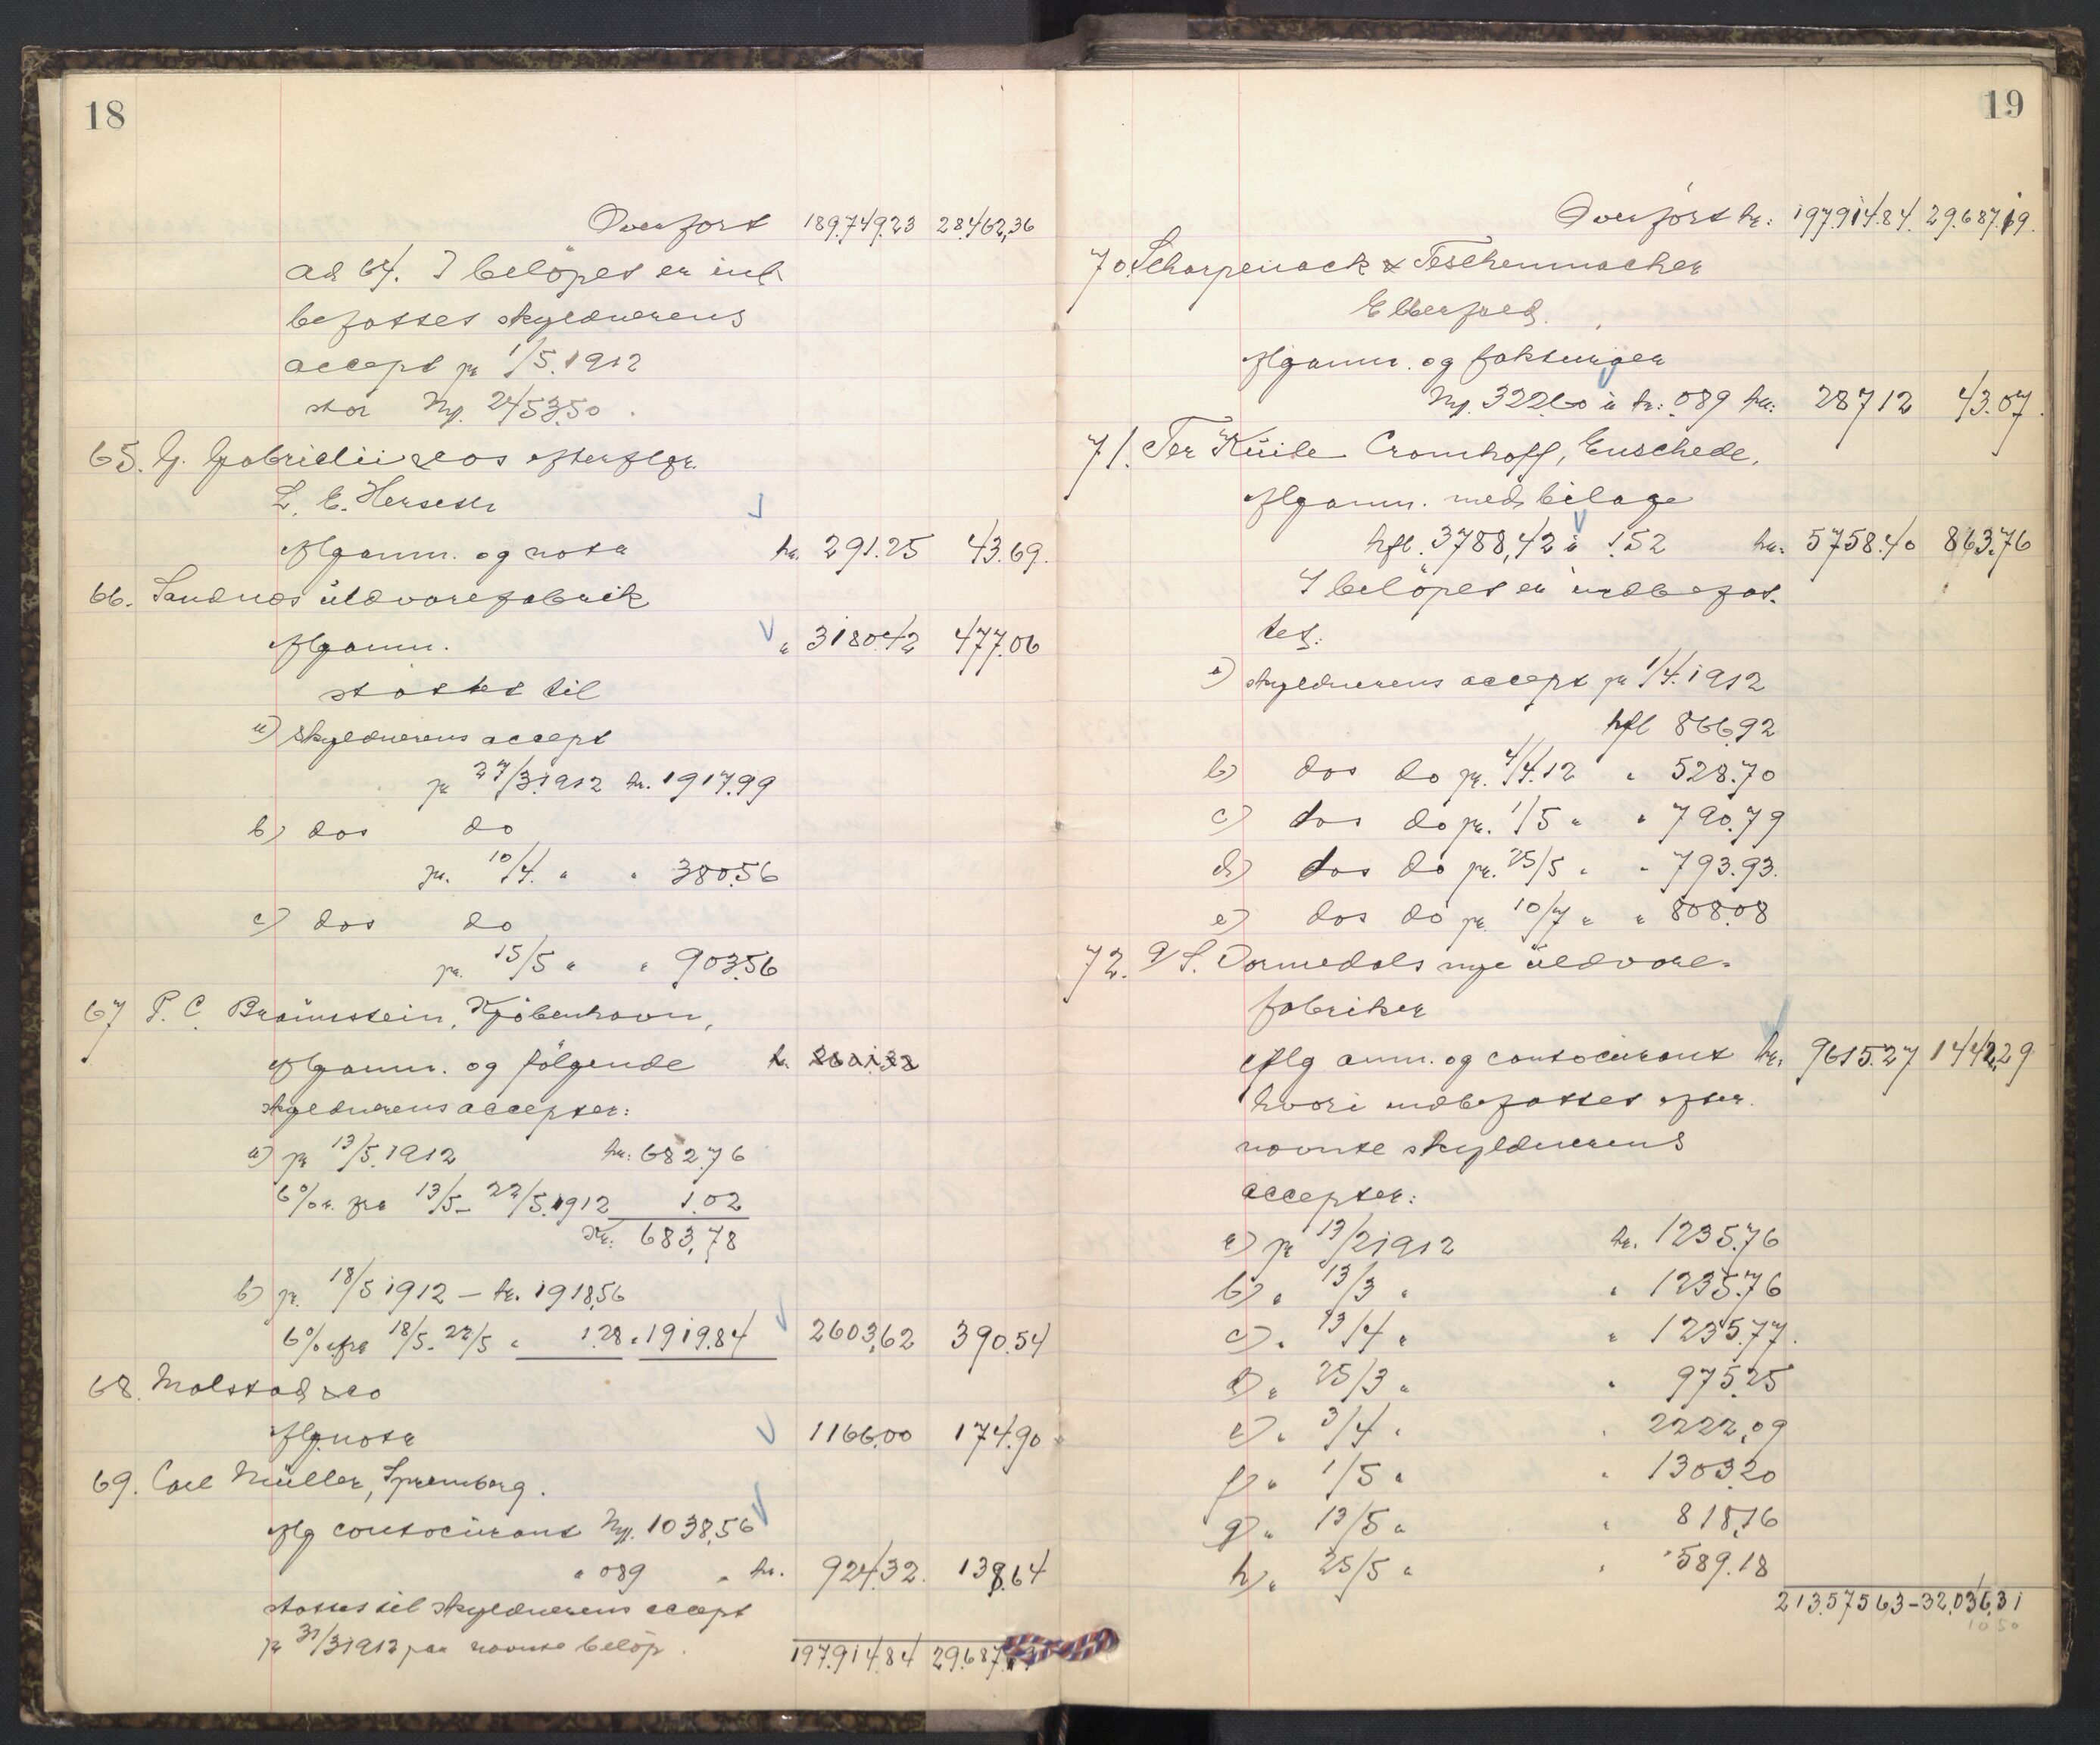 18
Overført 189.749.23 28.462,36
ad 64. I beløpet er ind-
befattet skyldnerens
accept pr 1/5. 1912
stor Mk. 2453.50.
65. G. Gabrielii & Cos efterflgr.
L. E. Herseth
iflg anm. og nota kr. 291.25 43.69.
66. Sandnes uldvarefabrik
iflg anm. " 3180.42 477.06
støttet til
a) skyldnerens accept
pr 27/3.1912 kr. 1917.99
b) dos do
pr. 10/4. " " 380.56
c) dos do
pr. 15/5 " " 903.56
67 P. C. Bräunstein, Kjøbenhavn,
iflg anm. og følgende k.
skyldnerens accepter:
a) pr 13/5. 1912 kr: 682.76
6% r. fra 13/5 - 22/5. 1912 1.02
Kr: 683,78
b) pr. 18/5 1912 – kr. 1918,56
6% r. fra 18/5 - 22/5 " 1.28 " 1919.84 2603,62 390.54
68. Malstad & Co
iflg nota 1166.00 174.90
69. Carl Müller, Spremberg.
iflg contocurant Mk. 1038,56
" 089 " kr. 924.32. 138,64
støttet til skyldnerens accept
pr 31/3 1912 paa nævnte beløp.
197.914.84 29.687.19
19
Overført kr: 197.914.84. 29.687.19.
70. Scharpenack & Teschenmacher
Elberfeld.
iflg anm. og fakturaer
Mk. 322.60 à kr: 089 kr: 287 12 43.07.
71. Ter Kuile Cromhoff, Enschede.
iflg anm. med bilage
hfl. 3788,42 à 1.52 kr: 5758.40 863.76
I beløpet er indbefat-
tet:
a) skyldnerens accept pr 1/4. 1912
hfl 866,92
b) dos do pr. 4/4. 12 " 528.70
c) dos do pr. 1/5 " " 790.79
d) dos do pr. 25/5 " " 793.93.
e) dos do pr 10/7 " " 808.08
72. A/S. Dormedals nye uldvare-
fabriker
iflg anm. og contocurant kr. 9615.27 1442,29
hvori indbefattet efter-
nævnte skyldnerens
accepter:
a) pr 13/2 1912 kr. 1235.76
b) " 13/3 " " 1235.76
c) " 13/4 " " 1235.77.
d) " 25/3 " " 975.25
e) " 3/4 " " 2222,09
f) " 1/5 " " 1303.20
g) " 13/5 " " 818,16
h) " 25/5 " " 589.18
213.575 63 – 32.036,31
10 50